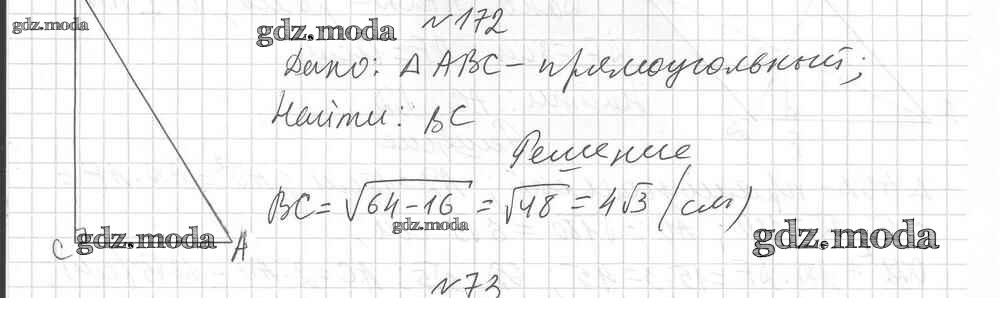 gdz.moda
gdz.moda
№172
Дано: Δ ABC - прямоугольный;
Найти: BC
Решение
BC = √64-16 = √48 = 4√3 (см)
gdz.moda
C
gdz.moda
A
gdz.moda
№73